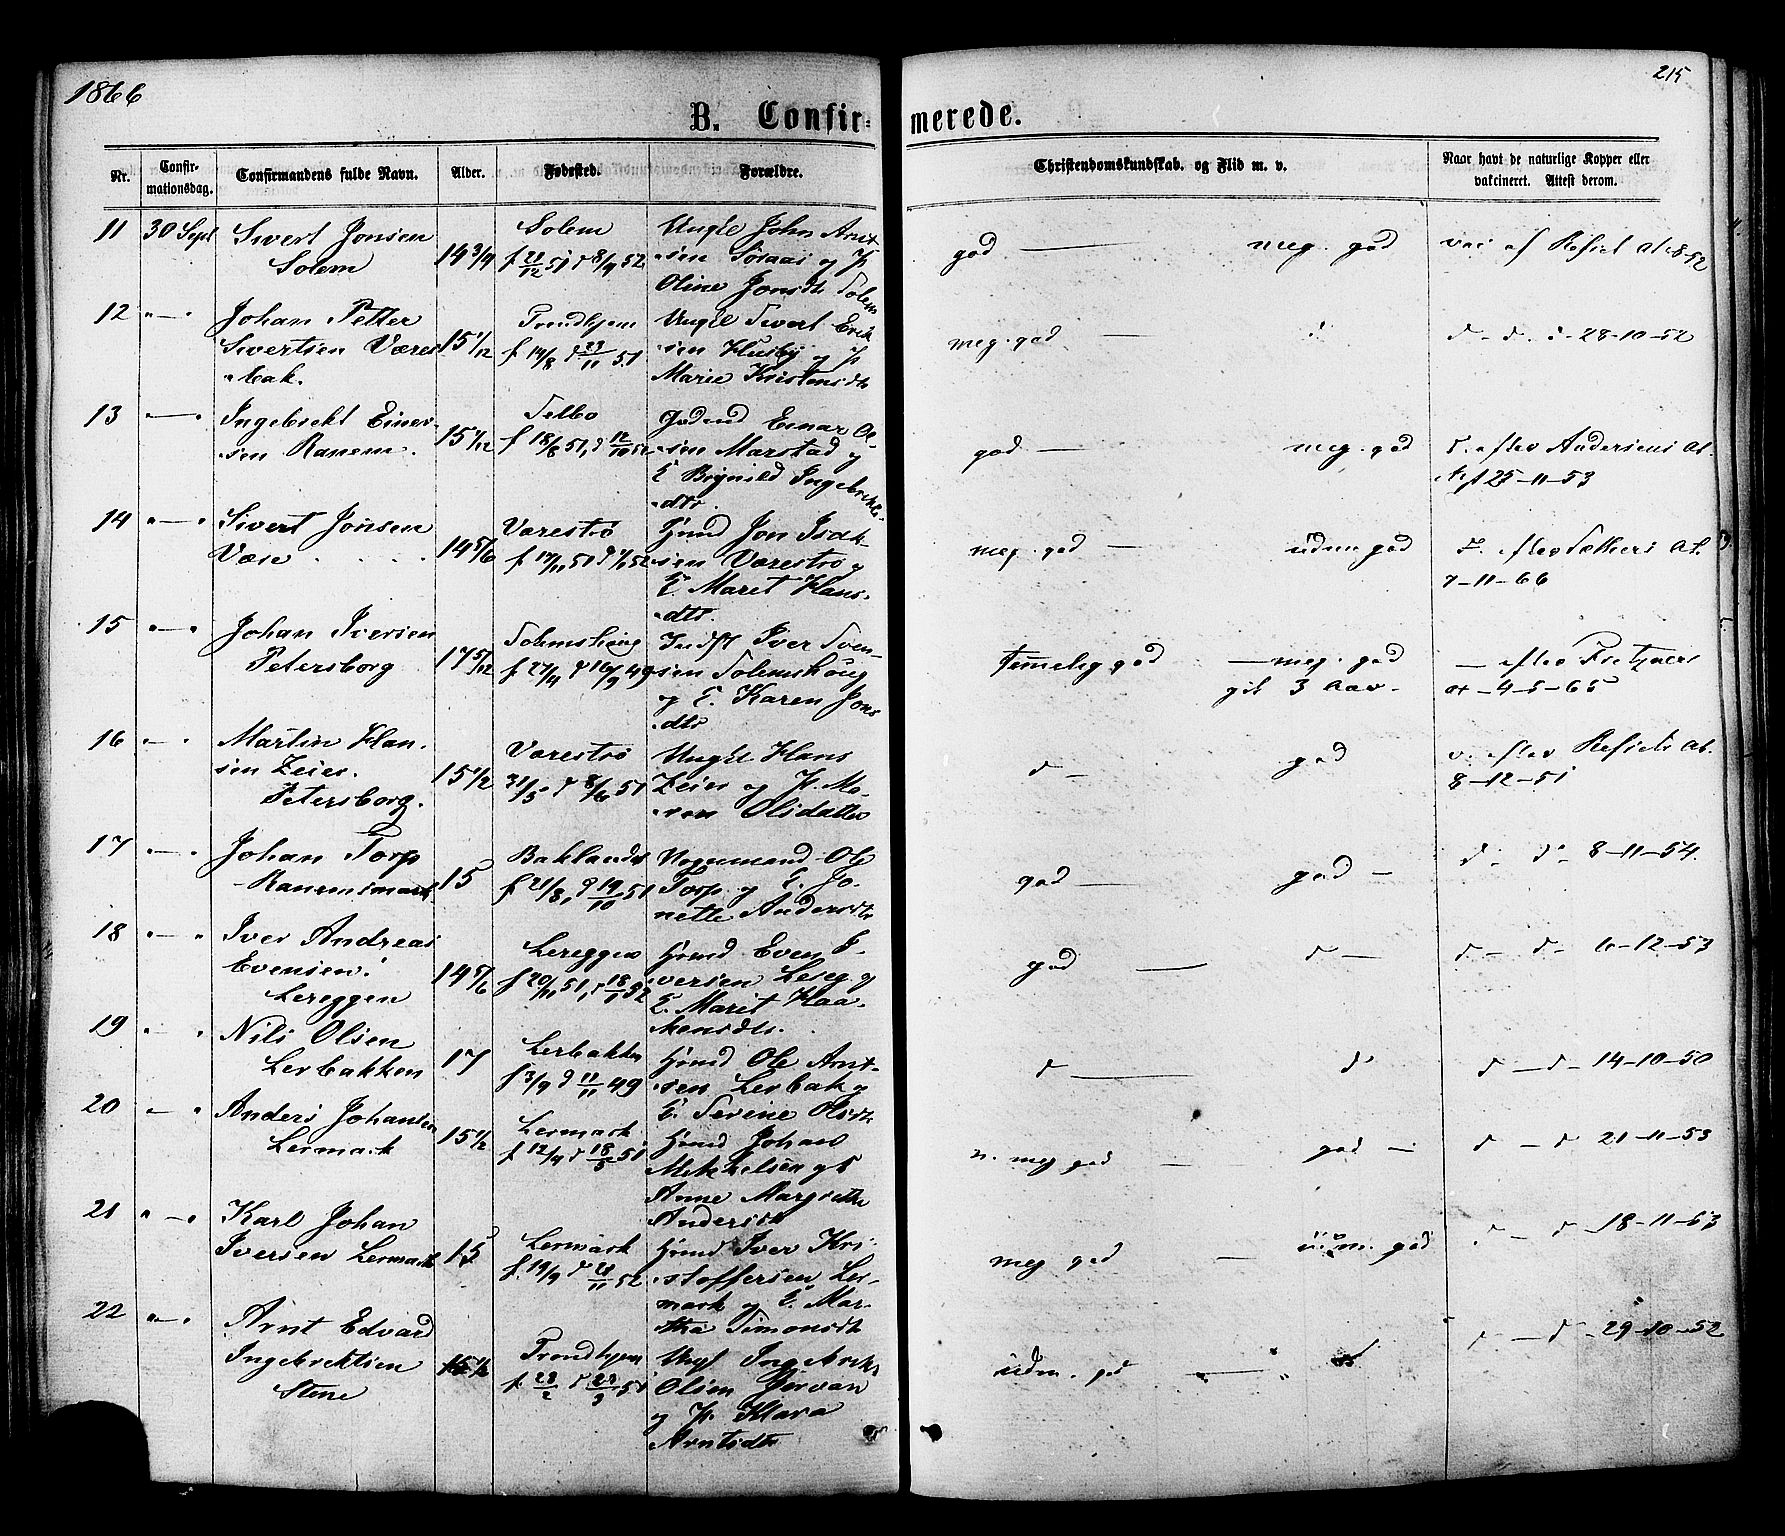 1866
215
B. Confir-
merede.
Nr.
Confir-
mationsdag.
Confirmandens fulde Navn.
Alder.
Fødested.
Forældre.
Christendomskundskab. og Flid m. v.
Naar havt de naturlige Kopper eller
vakcineret. Attest derom.
11 30 Sept Sivert Jonsen
Solem
14 3/4
Solem
f 28/12 51 d 8/4 52
Ungk John Arnt-
sen og P.
Oline Jonsdtr Solem
god — meg. god
vac af at 8-52
12 " — " Johan Petter
Sivertsen Væres
bak.
15 1/12
Trondhjem
f 14/8 d 23/11 51
Ungk Sivert Erik
sen Husby og P.
Marie Kristensdtr
meg. god —
d - d. 28-10-52
13 " — " Ingebrekt Einer-
sen Ranem.
15 1/12
Selbo
f 18/8 51, d 12/10 51
Einar Ol-
sen Marstad og
E Brynild Ingebrekts-
dtr.
god — meg. god
efter Andersens at.
25-11-53
14 " — " Sivert Jonsen
Være
14 5/6
Værestrø
f 14/11 51 d 1/1 52
Gmd Jon Isak-
sen Værestrø og
E Marit Hans-
dtr.
meg. god — udm god
efter at.
7-11-66
15 " — " Johan Iversen
Petersborg
17 5/12
Solemshaug
f 27/4 d 16/9 49
Indst Iver Sven-
sen Solemshøug
og E. Karen Jons
dtr
temmelig god — meg. god
gik 3 Aar -
— efter
at - 4-5-65
16 " — " Martin Han-
sen Zeier.
Petersborg.
15 1/2
Værestrø
31/5 d 8/6 51
Ungk Hans
Zeier og P. Ma-
ren Olsdatter
d - god
v. efter at.
8-12-51
17 " — " Johan Torp
Ranemsmark
15
Baklandet
f 21/8, d 19/10 51
Vognmand Ole
Torp og E. Jo-
nette Andersdtr
god — god —
d - d - 8-11-54.
18 " — " Iver Andreas
Evensen
Lereggen
14 5/6
Lereggen
f 20/11 51, d 18/1 52
Gmd Even I-
versen Lereg og
E. Marit Haa-
kensdtr.
god — d -
d - d - 6-12-53
19 " — " Nils Olsen
Lerbakken
17
Lerbakke
f 3/9 d 11/11 49
Gmd Ole Arnt-
sen Lerbak og
E. Serine Olsdtr
d — d
d - d - 14-10-50
20 " — " Anders Johansen
Lermark
15 1/2
Lermark
f. 12/4 d 18/5 51
Gmd Johan
Mekkelsen og E
Anne Margrethe
Andersdtr
n. meg god — god -
d - d 21-11-53
21 " — " Karl Johan
Iversen Lermark
15
Lermark
f. 19/9 d 28/11 52
Gmd Iver Kri-
stoffersen Ler-
mark og E. Mar-
tha Simonsdtr
meg god — udm. god
d - d - 18-11-53
22 " — " Arnt Edvard
Ingebrektsen
Stene
15 1/2
Trondhjem
f. 28/2 d 28/3 51
Ungk Ingebrekt
Olsen Jervan
og P. Klara
Arntsdtr
udm. god — d
d - d - 29-10-52